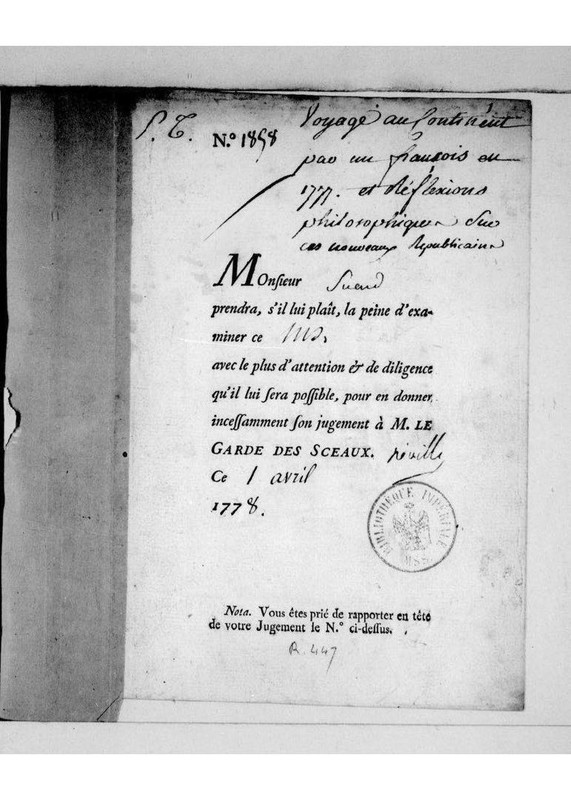 P. T.
N.º 1898
Voyage au Continent
par un françois en
1777. et Réflexions
philosophiques sur
ces nouveaux Republicains
MOnsieur Suard
prendra, s'il lui plaît, la peine d'exa-
miner ce ms.
avec le plus d'attention & de diligence
qu'il lui ſera poſſible, pour en donner
inceſſamment ſon jugement à M. LE
GARDE DES SCEAUX.
Ce 1 avril
1778.
BIBLIOTHÈQUE IMPÉRIALE
MSS.
Nota. Vous êtes prié de rapporter en tête
de votre Jugement le N.º ci-deſſus.
R. 447